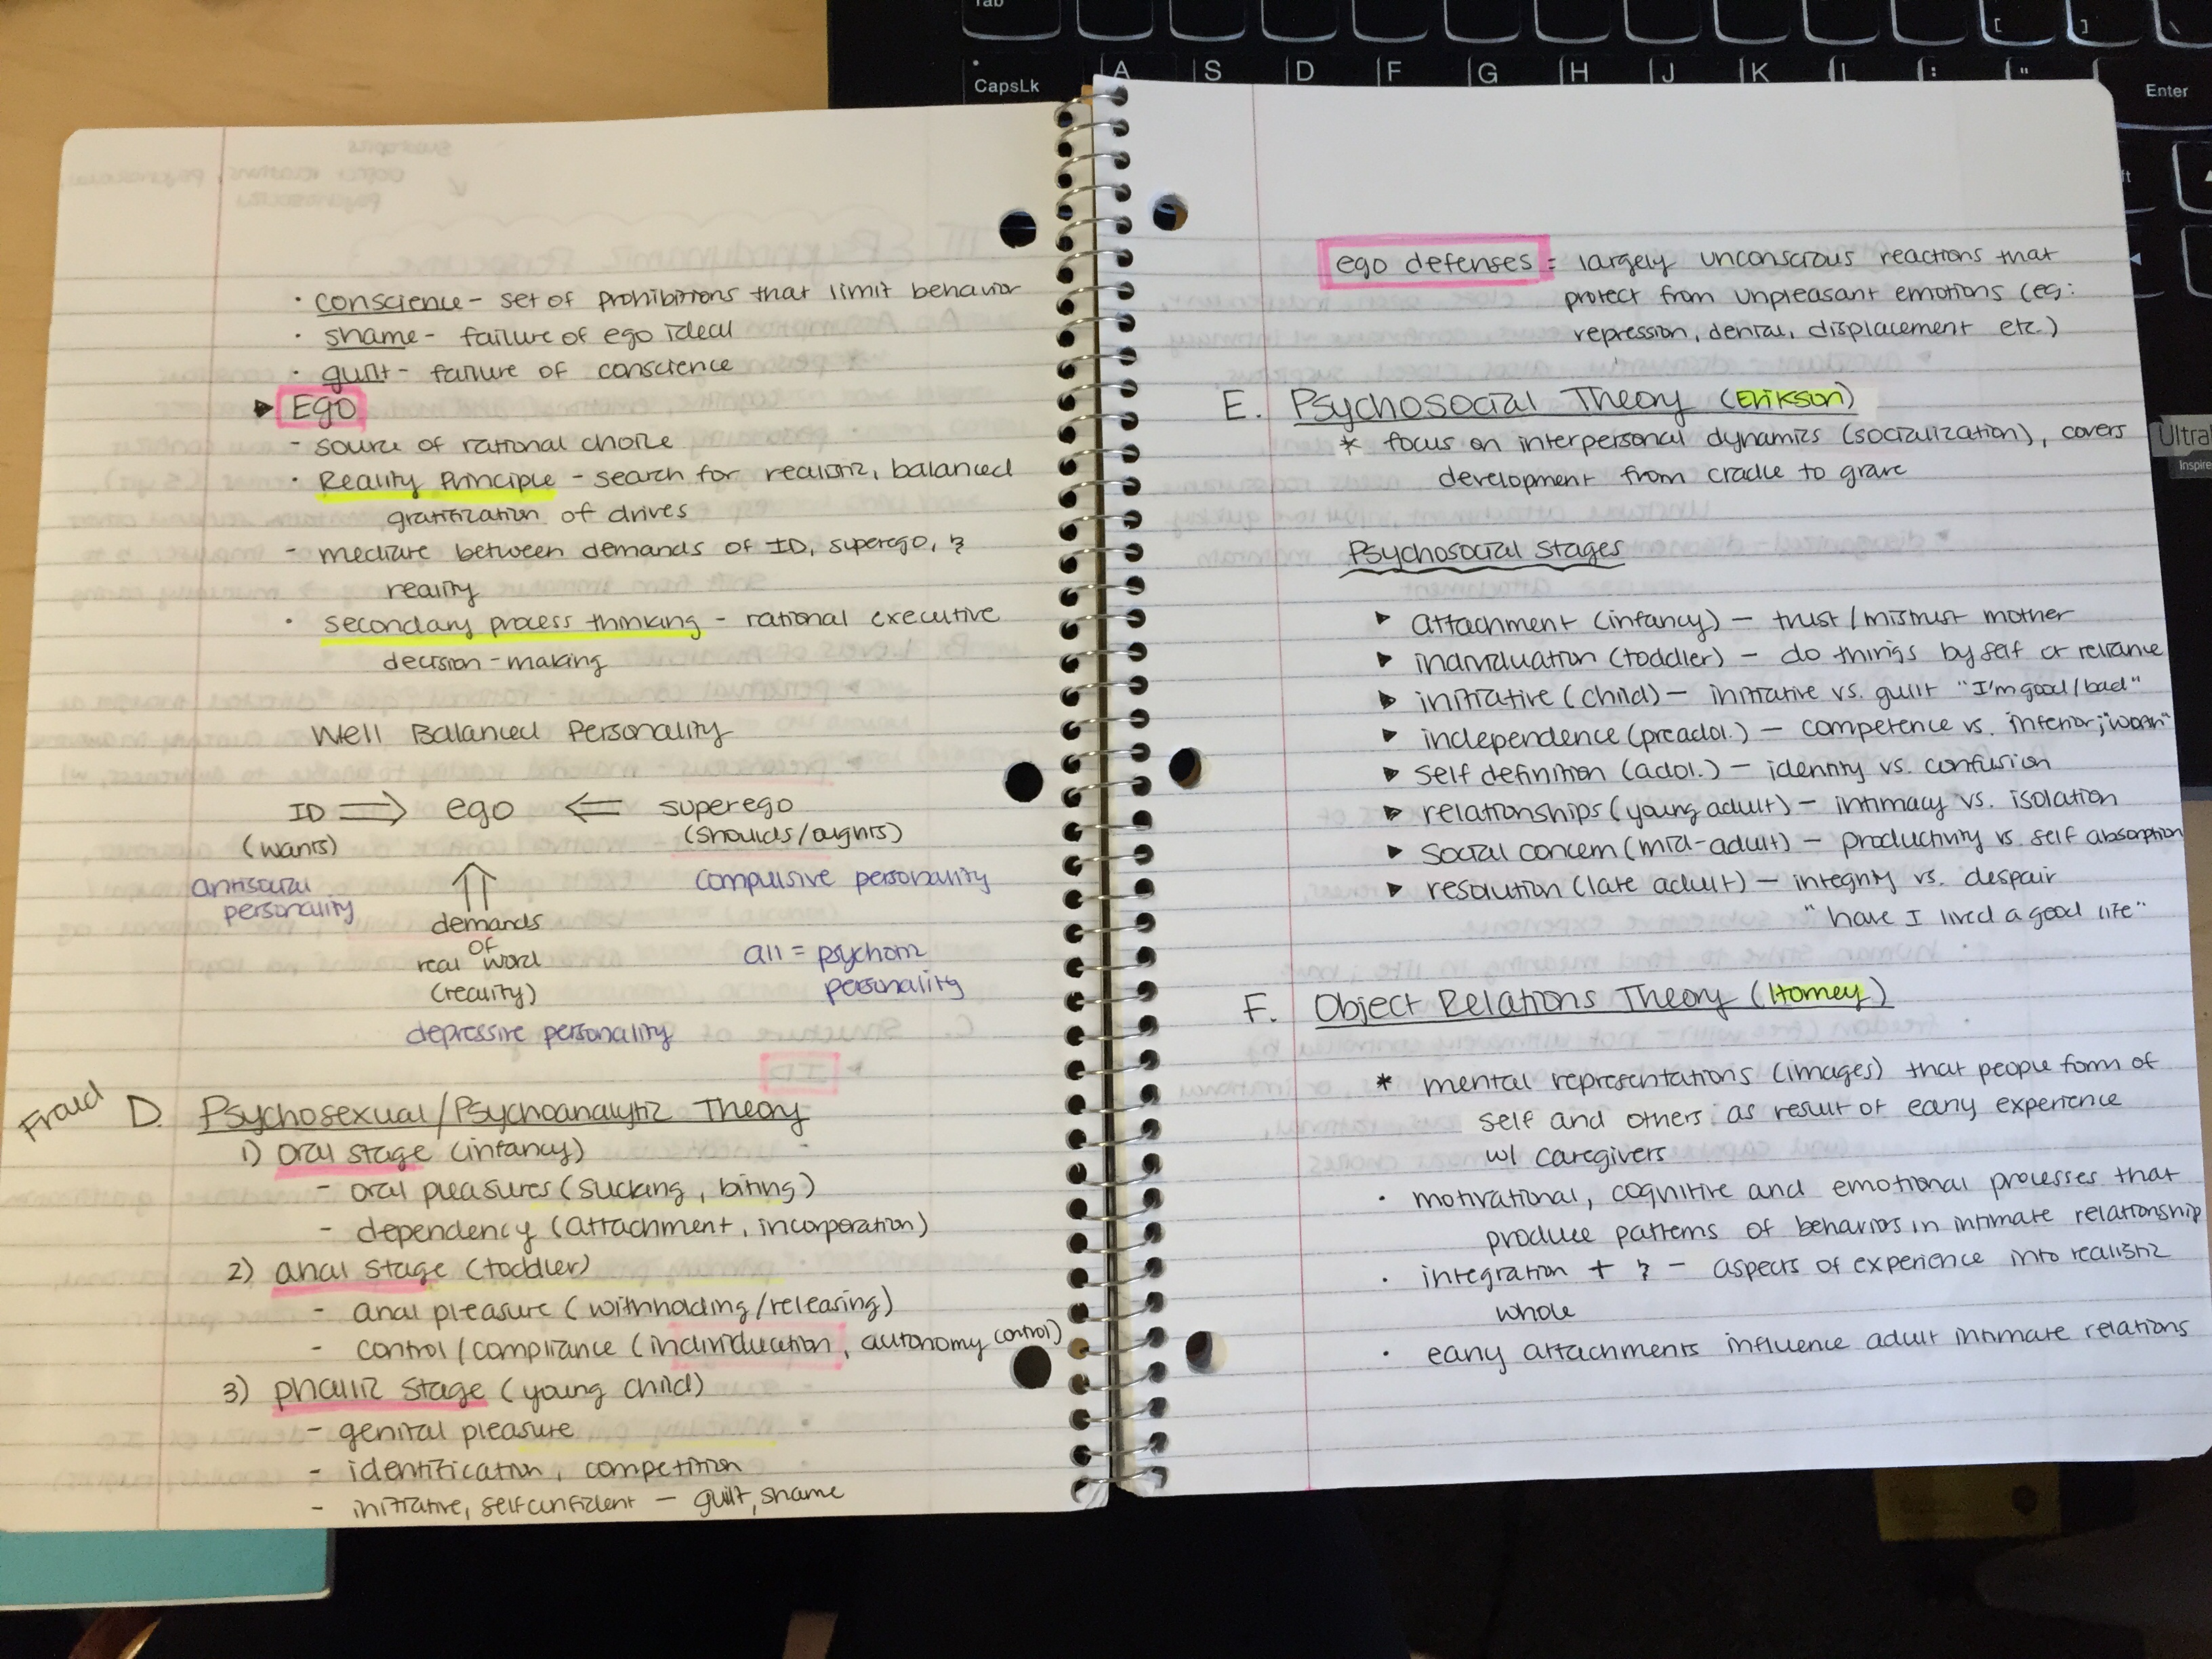 Tab
CapsLk
A S D F G H J K L : "
[ ]
Enter
Ultra
Inspire
• conscience - set of prohibitions that limit behavior
• shame - failure of ego ideal
• guilt - failure of conscience
▶ Ego
- source of rational choice
• Reality Principle - search for realistic, balanced
gratification of drives
- mediate between demands of ID, superego, &
reality
• secondary process thinking - rational executive
decision-making
Well Balanced Personality
ID ⇒ ego ⇐ superego
(wants) (shoulds/oughts)
antisocial
personality
compulsive personality
⇑
demands
of
real word
(reality)
all = psychotic
personality
depressive personality
Fraud D. Psychosexual/Psychoanalytic Theory
1) oral stage (infancy)
- oral pleasures (sucking, biting)
- dependency (attachment, incorporation)
2) anal stage (toddler)
- anal pleasure (withholding/releasing)
- control/compliance (individuation, autonomy control)
3) phallic stage (young child)
- genital pleasure
- identification, competition
- initiative, selfconfident - guilt, shame
ego defenses = largely unconscious reactions that
protect from unpleasant emotions (eg:
repression, denial, displacement etc.)
E. Psychosocial Theory (Erikson)
* focus on interpersonal dynamics (socialization), covers
development from cradle to grave
Psychosocial Stages
▶ attachment (infancy) - trust/mistrust mother
▶ individuation (toddler) - do things by self or reliance
▶ initiative (child) - initiative vs. guilt "I'm good/bad"
▶ independence (preadol.) - competence vs. inferior; "worth"
▶ self definition (adol.) - identity vs. confusion
▶ relationships (young adult) - intimacy vs. isolation
▶ social concern (mid-adult) - productivity vs. self absorption
▶ resolution (late adult) - integrity vs. despair
"have I lived a good life"
F. Object Relations Theory (Horney)
* mental representations (images) that people form of
self and others as result of early experience
w/ caregivers
• motivational, cognitive and emotional processes that
produce patterns of behaviors in intimate relationship
• integration + & - aspects of experience into realistic
whole
• early attachments influence adult intimate relations